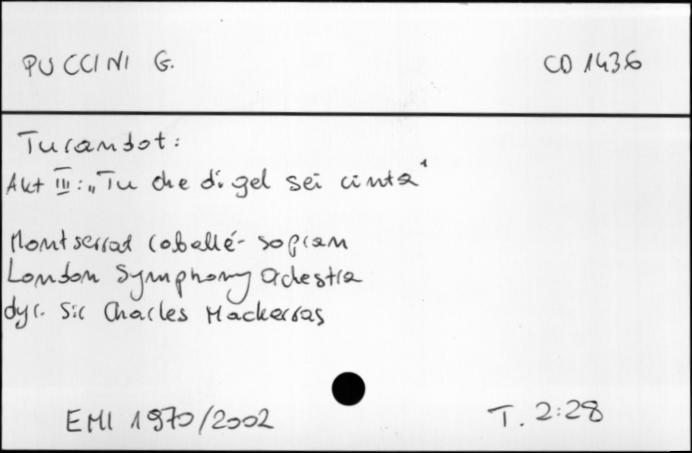 PUCCINI G. CD 1436
Turandot:
Akt III: „Tu che di gel sei cinta"
Montserrat Caballé - sopran
London Symphony Orchestra
dyr. Sir Charles Mackerras
EMI 1970/2002 T. 2:28